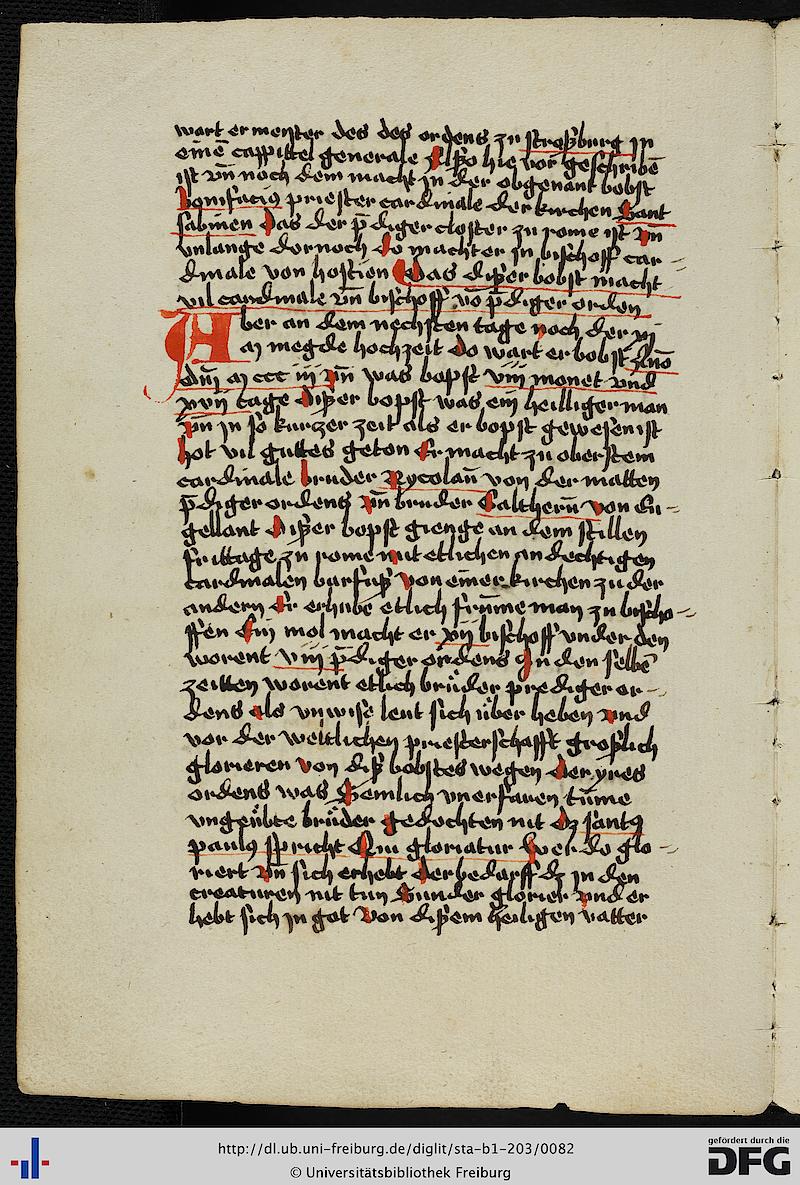 wart er meyster des des ordens zu stroßburg jn
eimē cappittel generale Alßo hie vor geschribē
ist vn̄ noch dem macht jn der obgenant bobst
Bonifacius priester cardinale der kirchen Sant
sabinen Das der p̄diger closter zu rome ist vn̄
vnlange dernoch do macht er jn bischoff car-
dinale von hostien Das dißer bobst macht
vil cardinale vn̄ bischoff vō p̄diger orden
Aber an dem nechsten tage noch der xj
m megde hochzeit do wart er bobst Anō
dn̄j m ccc iij vn̄ was bopst viij monet vnd
xvij tage Dißer bopst was ein heilliger man
vn̄ jn so kurzer zeit als er bopst gewesen ist
hot vil guttes geton Er macht zu oberstem
cardinale bruder Nycolaū von der matten
p̄diger ordens vn̄ bruder Galtherū von En-
gellant Dißer bopst gienge an dem stillen
frittage zu rome mit etlichen andechtigen
cardinalen barfuß von einer kirchen zu der
andern Er erhube etlich frum̄e man zu bischo-
ffen Ein mol macht er xij bischoff vnder den
worent viij p̄diger ordens Jn den selbē
zeitten worent etlich brüder prediger or-
dens als vnwise leut sich über heben vnd
vor der weltlichen priesterschafft großlich
glorieren von diß bobstes wegen der yres
ordens was Semlich vnerfaren tum̄e
vngeübte brüder gedochten nit dz santus
paulus spricht Qui gloriatur Wer do glo-
riert vn̄ sich erhebt der bedarff dz jn den
creaturen nit tun Sunder glorier vnd er
hebt sich jn got Von dißem heiligen vatter
http://dl.ub.uni-freiburg.de/diglit/sta-b1-203/0082
© Universitätsbibliothek Freiburg
gefördert durch die
DFG